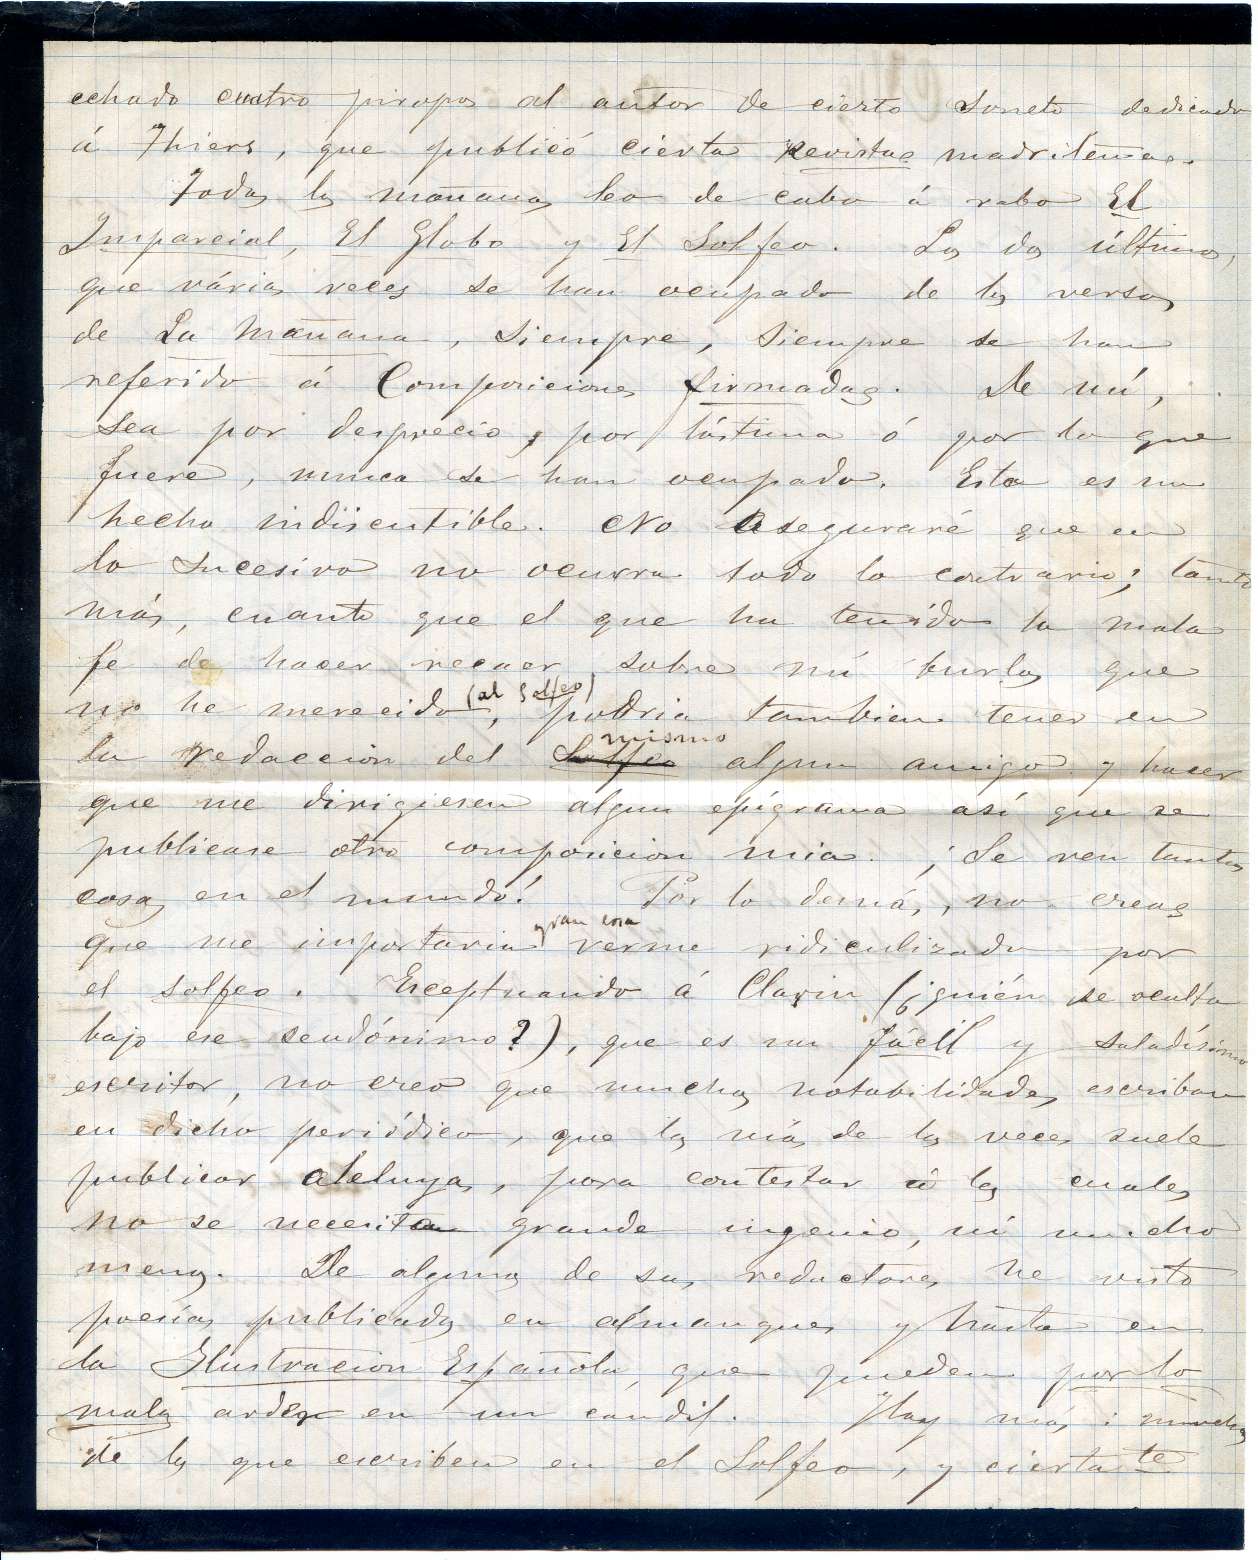 echado cuatro piropos al autor de cierto soneto dedicado
á Thiers, que publicó cierta Revista madrileña.
Todas las mañanas leo de cabo á rabo El
Imparcial, El Globo y El Solfeo. Los dos últimos,
que várias veces se han ocupado de los versos
de La Mañana, siempre, siempre se han
referido á composiciones firmadas. De mí,
sea por desprecio, por lástima ó por lo que
fuere, nunca se han ocupado. Esto es un
hecho indiscutible. No aseguraré que en
lo sucesivo no ocurra todo lo contrario; tanto
más, cuanto que el que ha tenido la mala
fe de hacer recaer sobre mí burlas que
(al Solfeo)
no he merecido, podria tambien tener en
mismo
la redaccion del Solfeo algun amigo y hacer
que me dirigiesen algun epígrama así que se
publicase otra composicion mia. ¡Se ven tantas
cosas en el mundo! Por lo demás, no creas
gran cosa
que me importaria verme ridiculizado por
el Solfeo. Esceptuando á Clarin (¿quién se oculta
bajo ese seudónimo?), que es un fácil y saladísimo
escritor, no creo que muchas notabilidades escriban
en dicho periódico, que las más de las veces suele
publicar aleluyas, para contestar á las cuales
no se necesita grande ingenio, ni mucho
menos. De algunos de sus redactores he visto
poesías publicadas en almanaques y hasta en
la Ilustracion Española, que pueden por lo
malas arder en un candil. Hay más: muchos
de los que escriben en el Solfeo, y ciertate